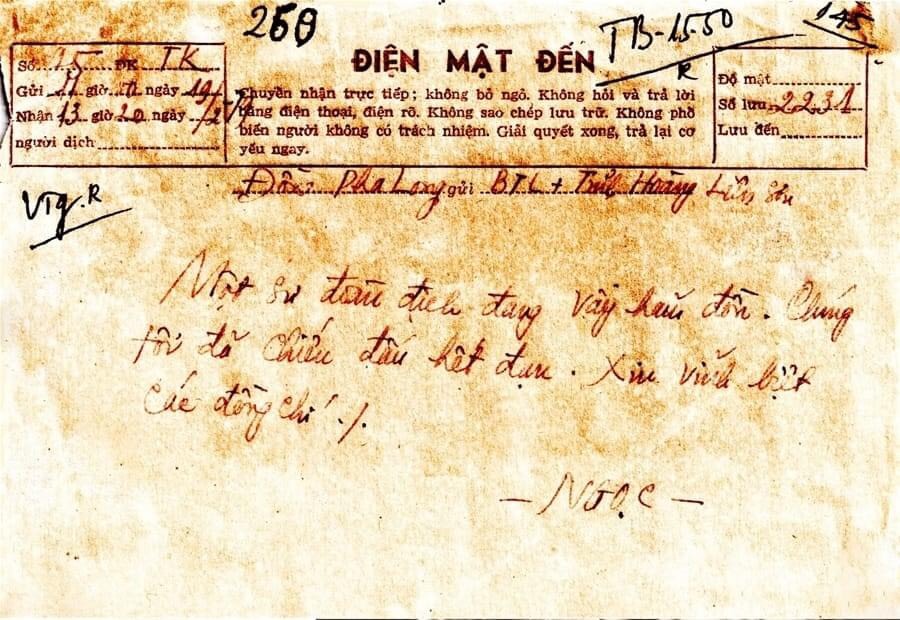 250
TB-15.50
R
145
Số 15 ĐK TK
Gửi 11 giờ ngày 19/2
Nhận 13 giờ 20 ngày
người dịch
ĐIỆN MẬT ĐẾN
Chuyển nhận trực tiếp; không bỏ ngỏ. Không hỏi và trả lời
bằng điện thoại, điện rõ. Không sao chép lưu trữ. Không phổ
biến người không có trách nhiệm. Giải quyết xong, trả lại cơ
yếu ngay.
Độ mật
Số lưu 2231
Lưu đến
Đồn: Pha Long gửi BTL + Tỉnh Hoàng Liên Sơn
VTg.R
Một sư đoàn địch đang vây hãm đồn. Chúng
tôi đã chiến đấu hết đạn. Xin vĩnh biệt
các đồng chí ./.
— NGỌC —